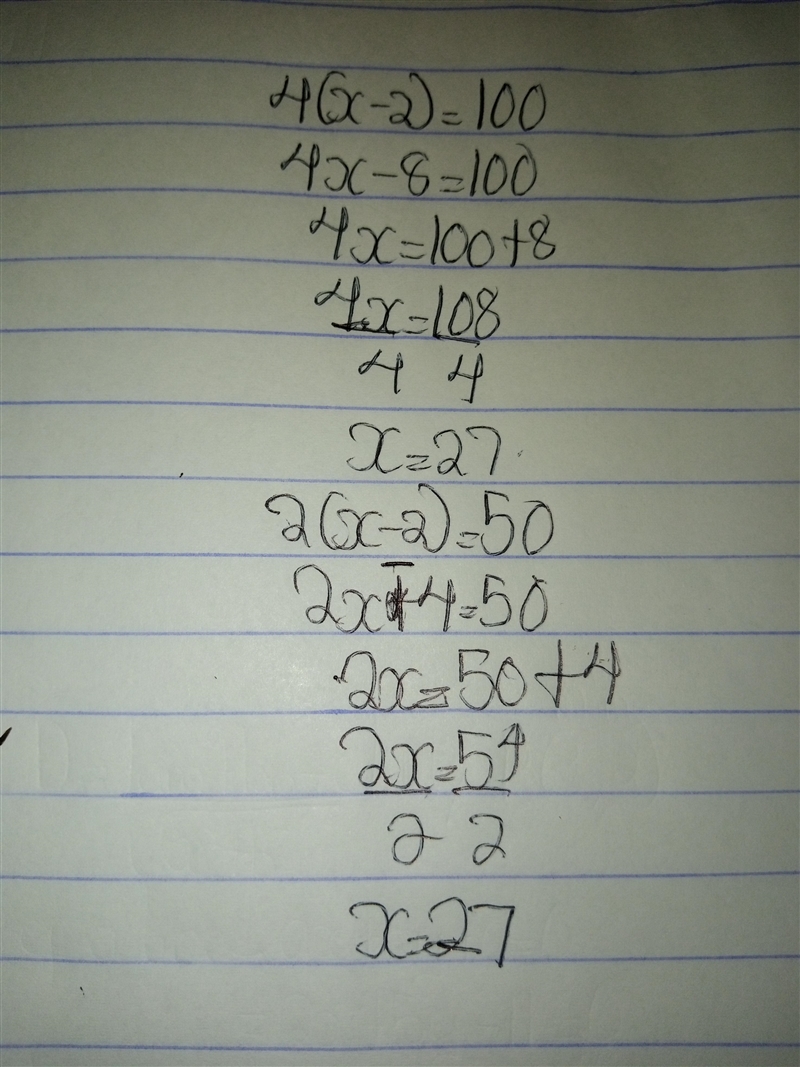 4(x-2)=100
4x-8=100
4x=100+8
4x=108
4 4
x=27
2(x-2)=50
2x-4=50
2x=50+4
2x=54
2 2
x=27